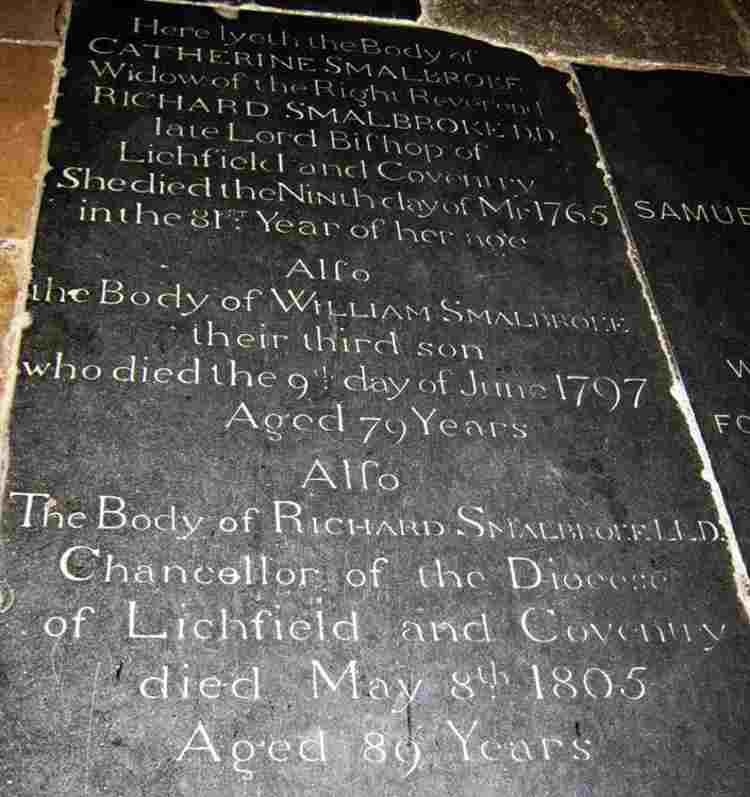 Here lyeth the Body of
CATHERINE SMALBROKE
Widow of the Right Reverend
RICHARD SMALBROKE D.D.
late Lord Biſhop of
Lichfield and Coventry
She died the Ninth day of Mr 1765
in the 81st Year of her age
Alſo
the Body of WILLIAM SMALBROKE
their third son
who died the 9th day of June 1797
Aged 79 Years
Alſo
The Body of RICHARD SMALBROKE LL.D.
Chancellor of the Diocese
of Lichfield and Coventry
died May 8th 1805
Aged 89 Years
SAMUE
W
FO